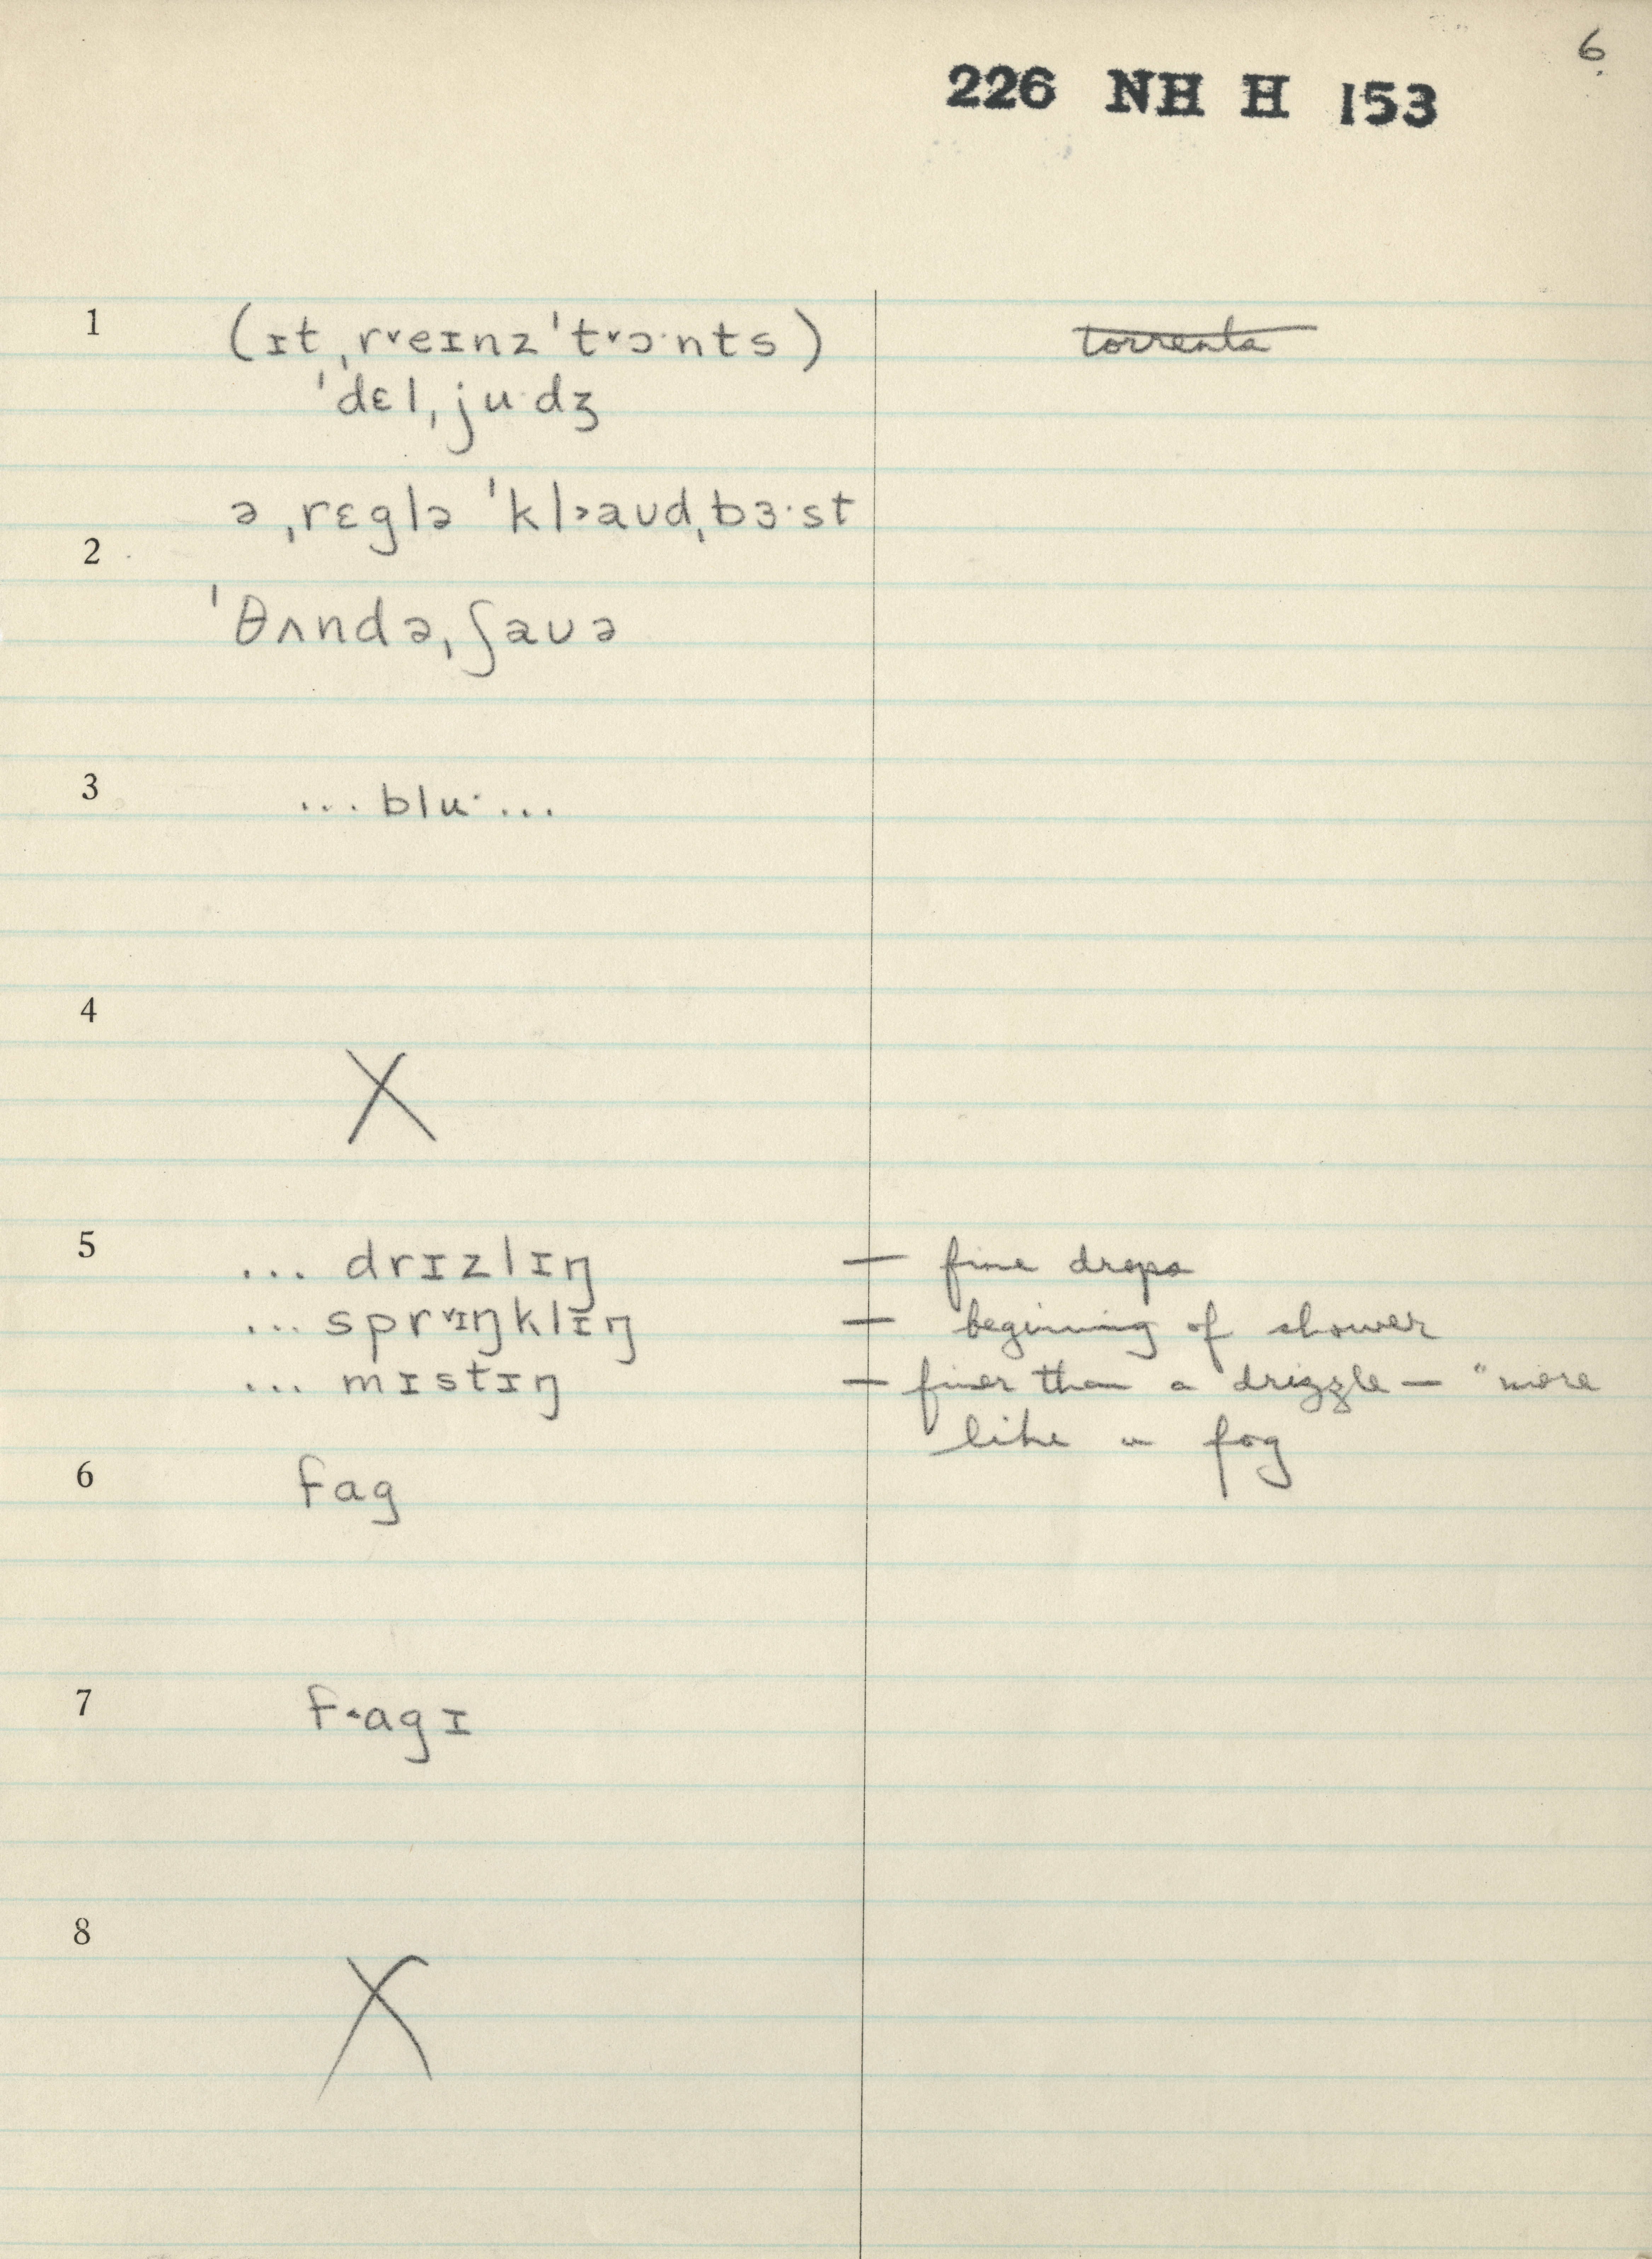 6.
226 NH H 153
1 (ɪt ˌr˅eɪnz ˈt˅ɔ·nts) torrents
ˈdɛlˌju·dʒ
ə ˌrɛglə ˈkl˃aʊdˌbɜ·st
2
ˈθʌndəˌʃaʊə
3 ... blu· ...
4
X
5 ... drɪzlɪŋ — fine drops
... spr˅ɪŋklɪŋ — beginning of shower
... mɪstɪŋ — finer than a drizzle — "more
like a fog
6 fag
7 f˂agɪ
8
X